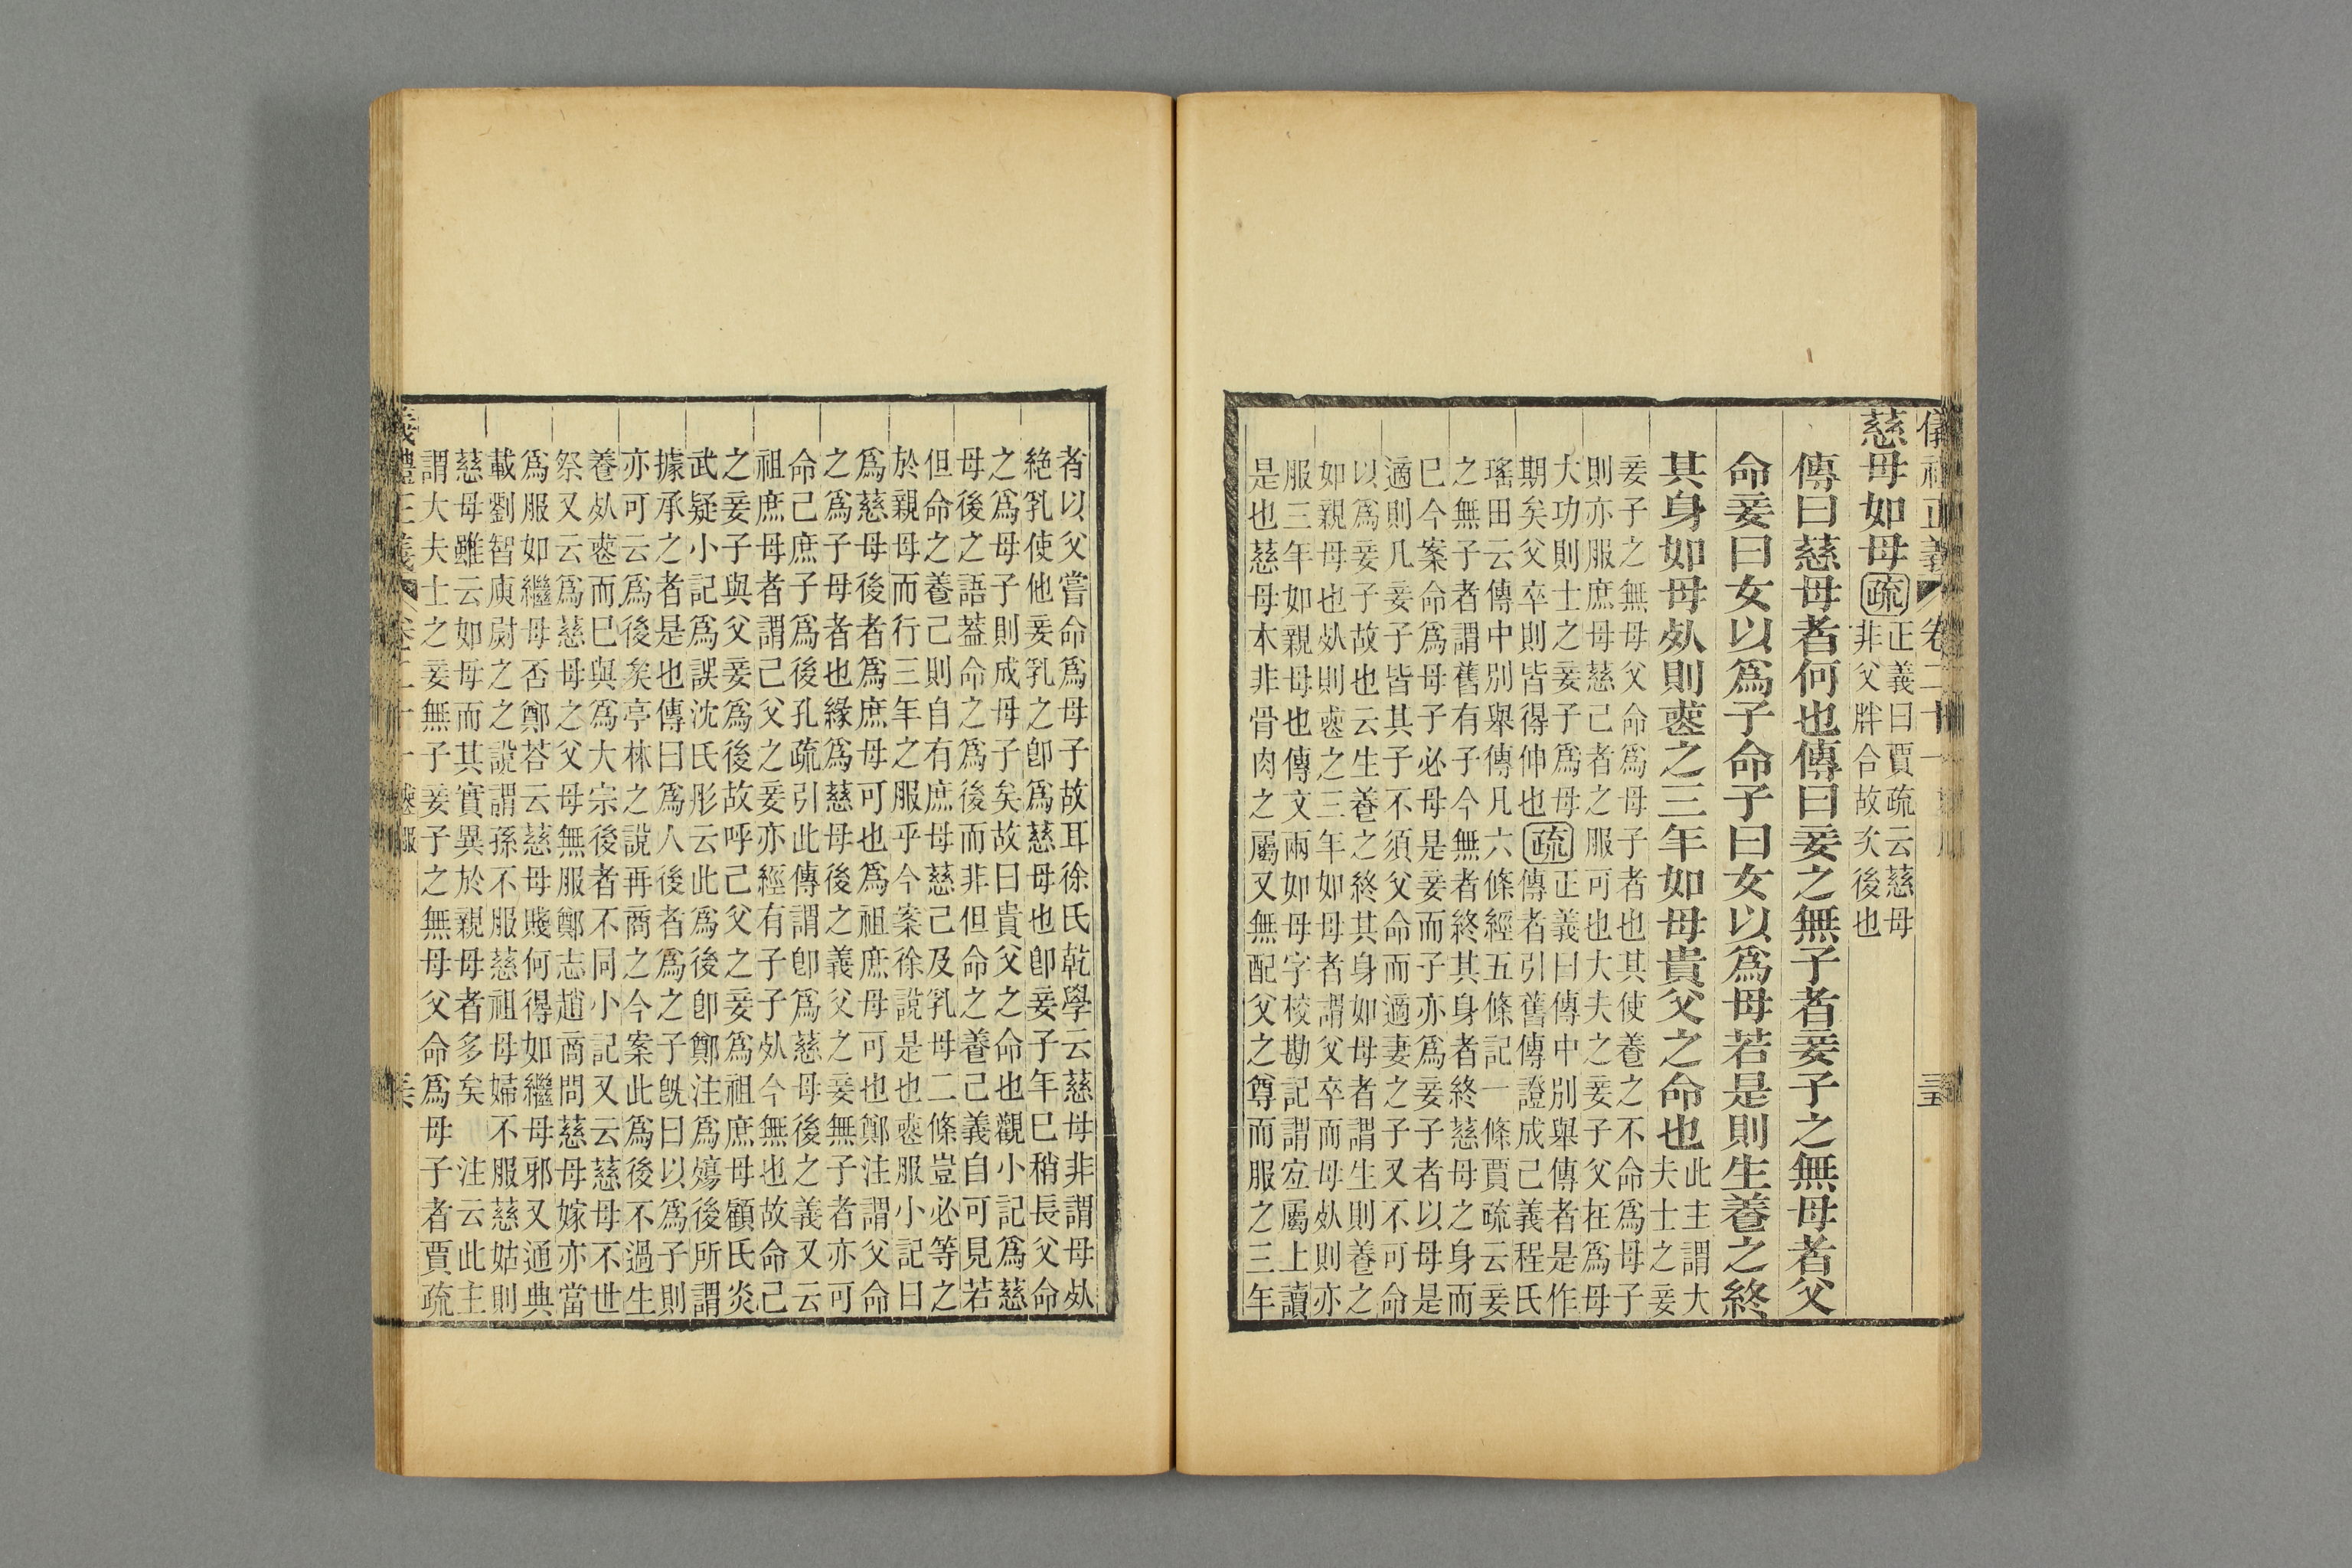 儀禮正義 卷二十一 喪服 三五
慈母如母疏
正義曰賈疏云慈母
非父胖合故次後也
傳曰慈母者何也傳曰妾之無子者妾子之無母者父
命妾曰女以爲子命子曰女以爲母若是則生養之終
其身如母死則喪之三年如母貴父之命也
此主謂大
夫士之妾
妾子之無母父命爲母子者也其使養之不命爲母子
則亦服庶母慈己者之服可也大夫之妾子父在爲母
大功則士之妾子爲母
期矣父卒則皆得伸也
疏
正義曰傳中別舉傳者是作
傳者引舊傳證成己義程氏
瑤田云傳中別舉傳凡六條經五條記一條賈疏云妾
之無子者謂舊有子今無者終其身者終慈母之身而
巳今案命爲母子必母是妾而子亦爲妾子者以母是
適則几妾子皆其子不須父命而適妻之子又不可命
以爲妾子故也云生養之終其身如母者謂生則養之
如親母也死則喪之三年如母者謂父卒而母死則亦
服三年如親母也傳文兩如母字校勘記謂宜屬上讀
是也慈母本非骨肉之屬又無配父之尊而服之三年
者以父嘗命爲母子故耳徐氏乾學云慈母非謂母死
絶乳使他妾乳之卽爲慈母也卽妾子年巳稍長父命
之爲母子則成母子矣故曰貴父之命也觀小記爲慈
母後之語葢命之爲後而非但命之養己義自可見若
但命之養己則自有庶母慈己及乳母二條豈必等之
於親母而行三年之服乎今案徐說是也喪服小記曰
爲慈母後者爲庶母可也爲祖庶母可也鄭注謂父命
之爲子母者也緣爲慈母後之義父之妾無子者亦可
命己庶子爲後孔疏引此傳謂卽爲慈母後之義又云
祖庶母者謂己父之妾亦經有子子死今無也故命己
之妾子與父妾爲後故呼己父之妾爲祖庶母顧氏炎
武疑小記爲誤沈氏彤云此爲後卽鄭注爲殤後所謂
據承之者是也傳曰爲人後者爲之子旣曰以爲子則
亦可云爲後矣亭林之說再商之今案此爲後不過生
養死喪而巳與爲大宗後者不同小記又云慈母不世
祭又云爲慈母之父母無服鄭志趙商問慈母嫁亦當
爲服如繼母否鄭荅云慈母賤何得如繼母邪又通典
載劉智庾尉之之說謂孫不服慈祖母婦不服慈姑則
慈母雖云如母而其實異於親母者多矣 注云此主
謂大夫士之妾無子妾子之無母父命爲母子者賈疏